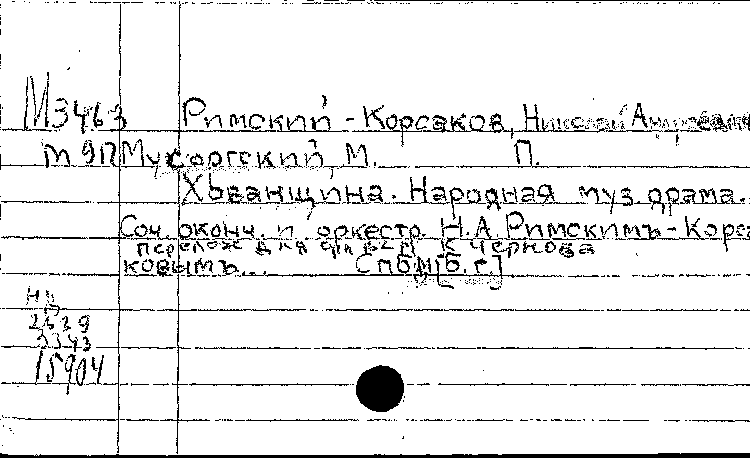 М3463 Римский-Корсаков, Николай
м9П Мусоргский, М. П.
Хованщина. Народная муз. драма.
Соч. оконч. и оркестр. Н.А. Римскимъ-Корса
перелож для фп в 2 р К Чернова
ковымъ... СПб [б. г.]
нв
2529
3343
15904